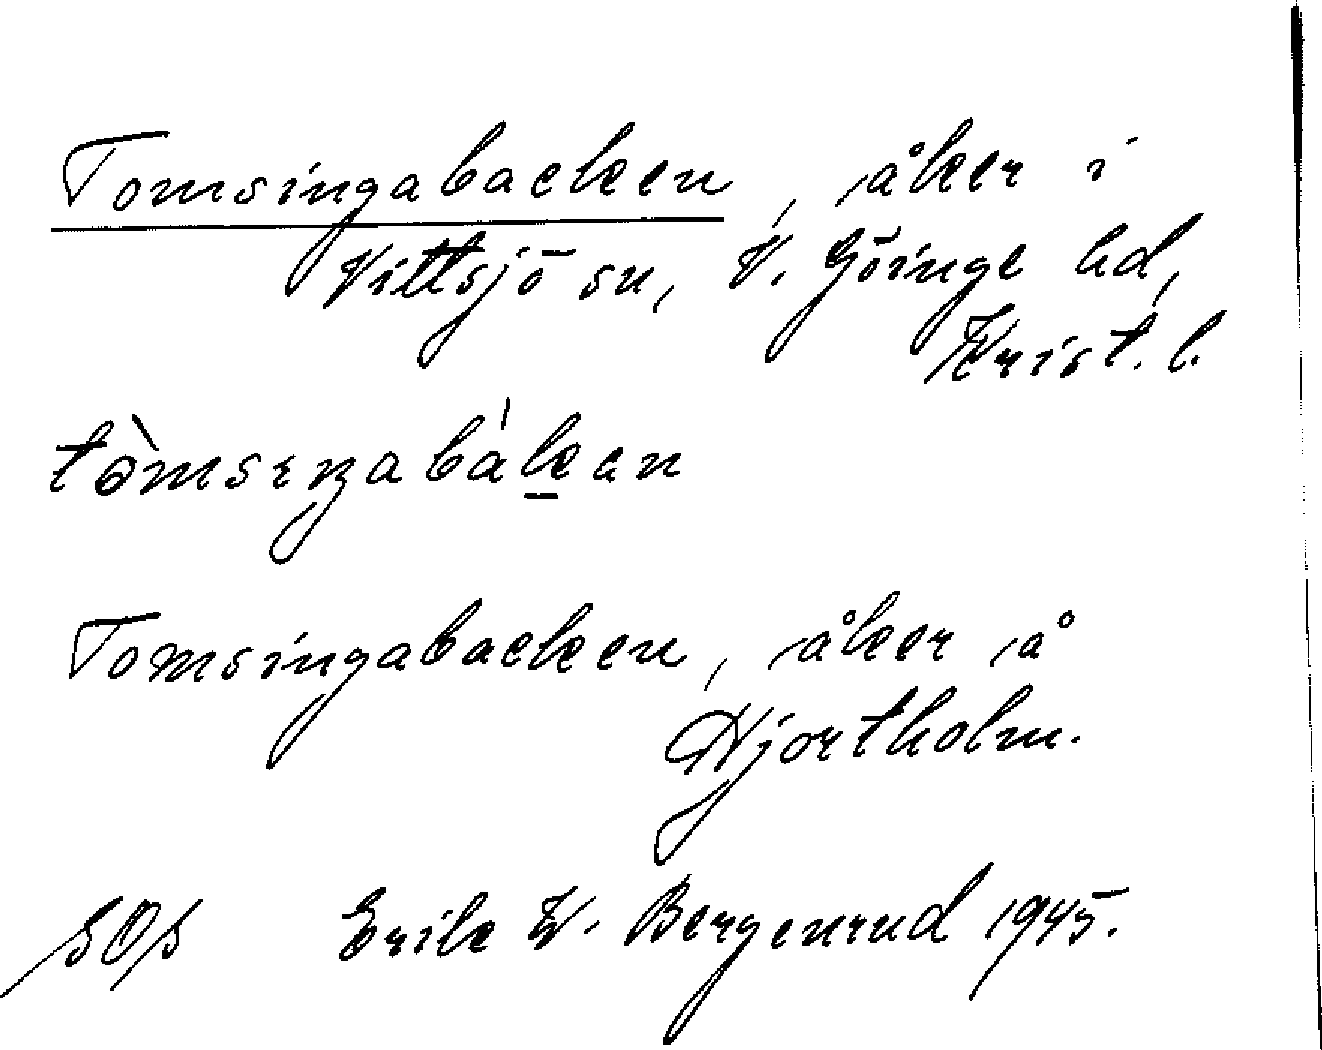 Tomsingabacken, åker i
Vittsjö sn, V. Göinge hd,
Krist. l.
tòmsıŋabákan
Tomsingabacken, åker å
Hjortholm.
SOS Erik W. Bergenrud 1945.